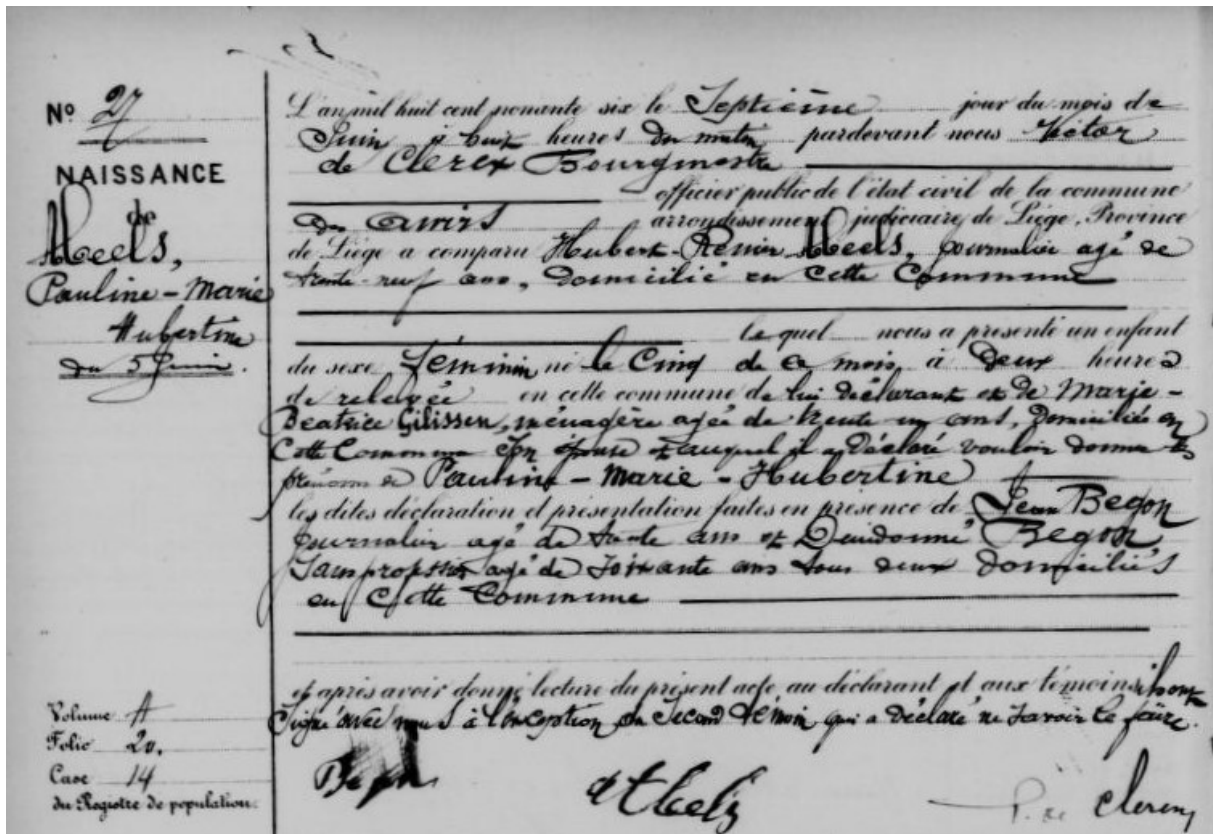 Nº 27
NAISSANCE
de
Meels,
Pauline-Marie
Hubertine
du 5 Juin.
L'an mil huit cent nonante six le Septième jour du mois de
Juin à huit heures du matin pardevant nous Victor
de Clerex Bourgmestre
officier public de l'état civil de la commune
des Awirs arrondissement judiciaire de Liége, Province
de Liége a comparu Hubert-Remi Meels, journalier agé de
trente-neuf ans, domicilié en cette Commune
lequel nous a présenté un enfant
du sexe féminin né le Cinq de ce mois à deux heures
de relevée en cette commune de lui déclarant et de Marie-
Béatrice Gilissen, ménagère agée de trente un ans, domiciliée en
Cette Commune son épouse et auquel il a déclaré vouloir donner les
prénoms de Pauline-Marie-Hubertine
les dites déclaration et présentation faites en présence de Jean Begon
journalier agé de trente ans et Dieudonné Begon
sans profession agé de soixante ans tous deux domiciliés
en Cette Commune
et après avoir donné lecture du présent acte au déclarant et aux témoins ils ont
signé avec nous à l'exception du second témoin qui a déclaré ne savoir le faire.
Begon
V. de Clerex
Volume A
Folio 20.
Case 14
du Registre de population.